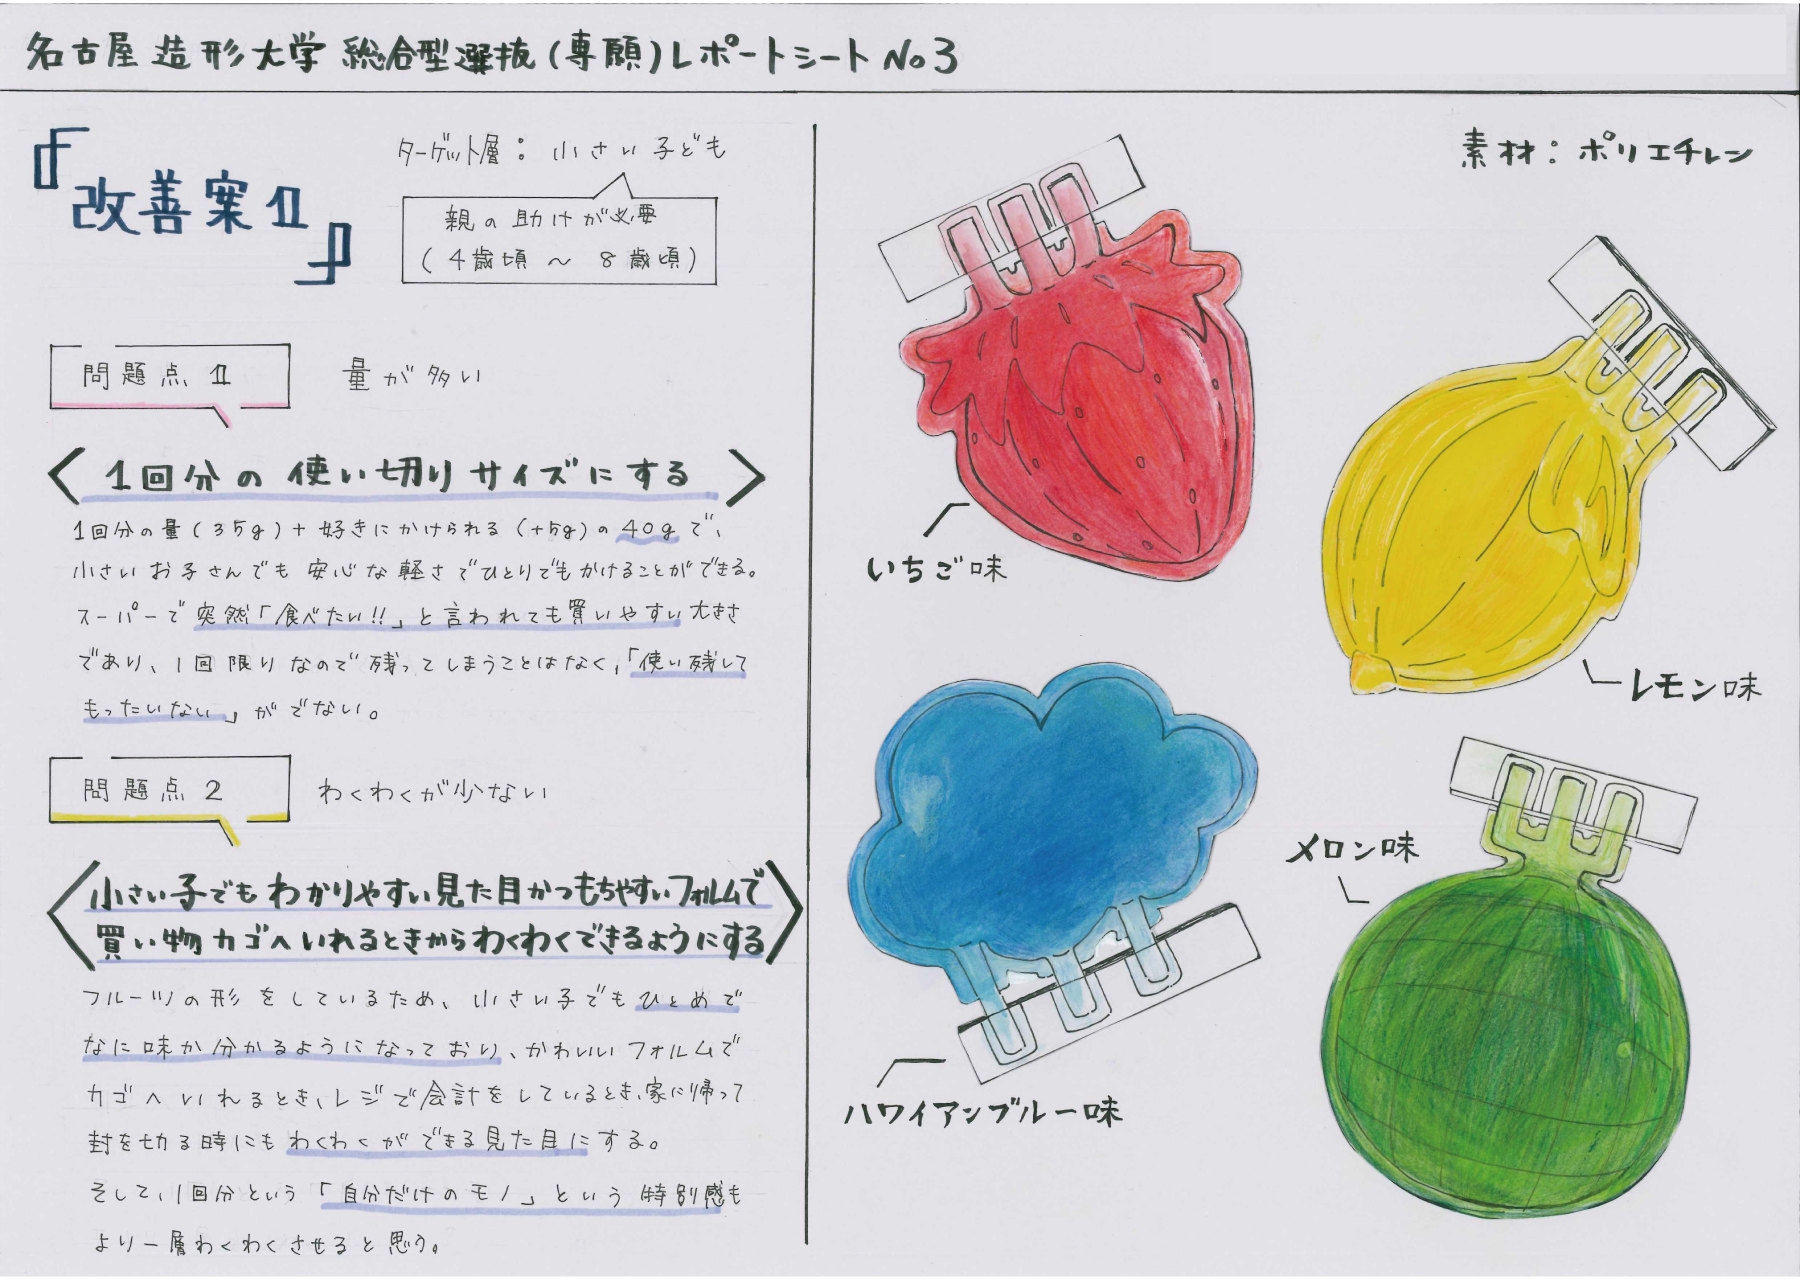 名古屋造形大学 総合型選抜(専願)レポートシート No3
『改善案1』
ターゲット層：小さい子ども
親の助けが必要
(4歳頃 〜 8歳頃)
問題点 1
量が多い
〈 1回分の使い切りサイズにする 〉
1回分の量(35g)+好きにかけられる(+5g)の40gで、
小さいお子さんでも安心な軽さでひとりでもかけることができる。
スーパーで突然「食べたい!!」と言われても買いやすい大きさ
であり、1回限りなので残ってしまうことはなく、「使い残して
もったいない」がでない。
問題点 2
わくわくが少ない
〈 小さい子でもわかりやすい見た目かつもちやすいフォルムで
買い物カゴへいれるときからわくわくできるようにする 〉
フルーツの形をしているため、小さい子でもひとめで
なに味か分かるようになっており、かわいいフォルムで
カゴへいれるとき、レジで会計をしているとき、家に帰って
封を切る時にもわくわくができる見た目にする。
そして、1回分という「自分だけのモノ」という特別感も
より一層わくわくさせると思う。
素材：ポリエチレン
いちご味
レモン味
メロン味
ハワイアンブルー味